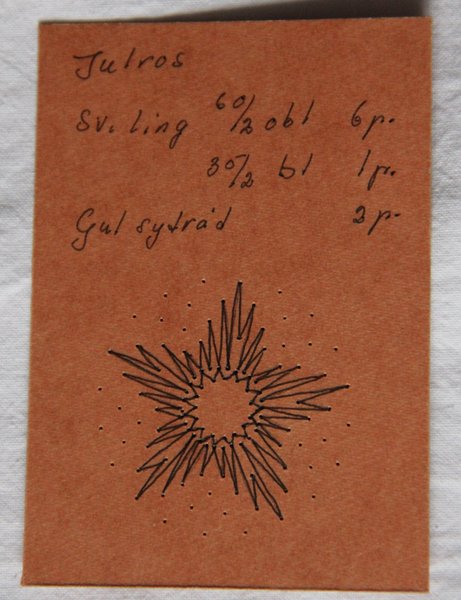 Julros
Sv. ling 60/2 obl 6 p.
30/2 bl 1 p.
Gul sytråd 2 p.